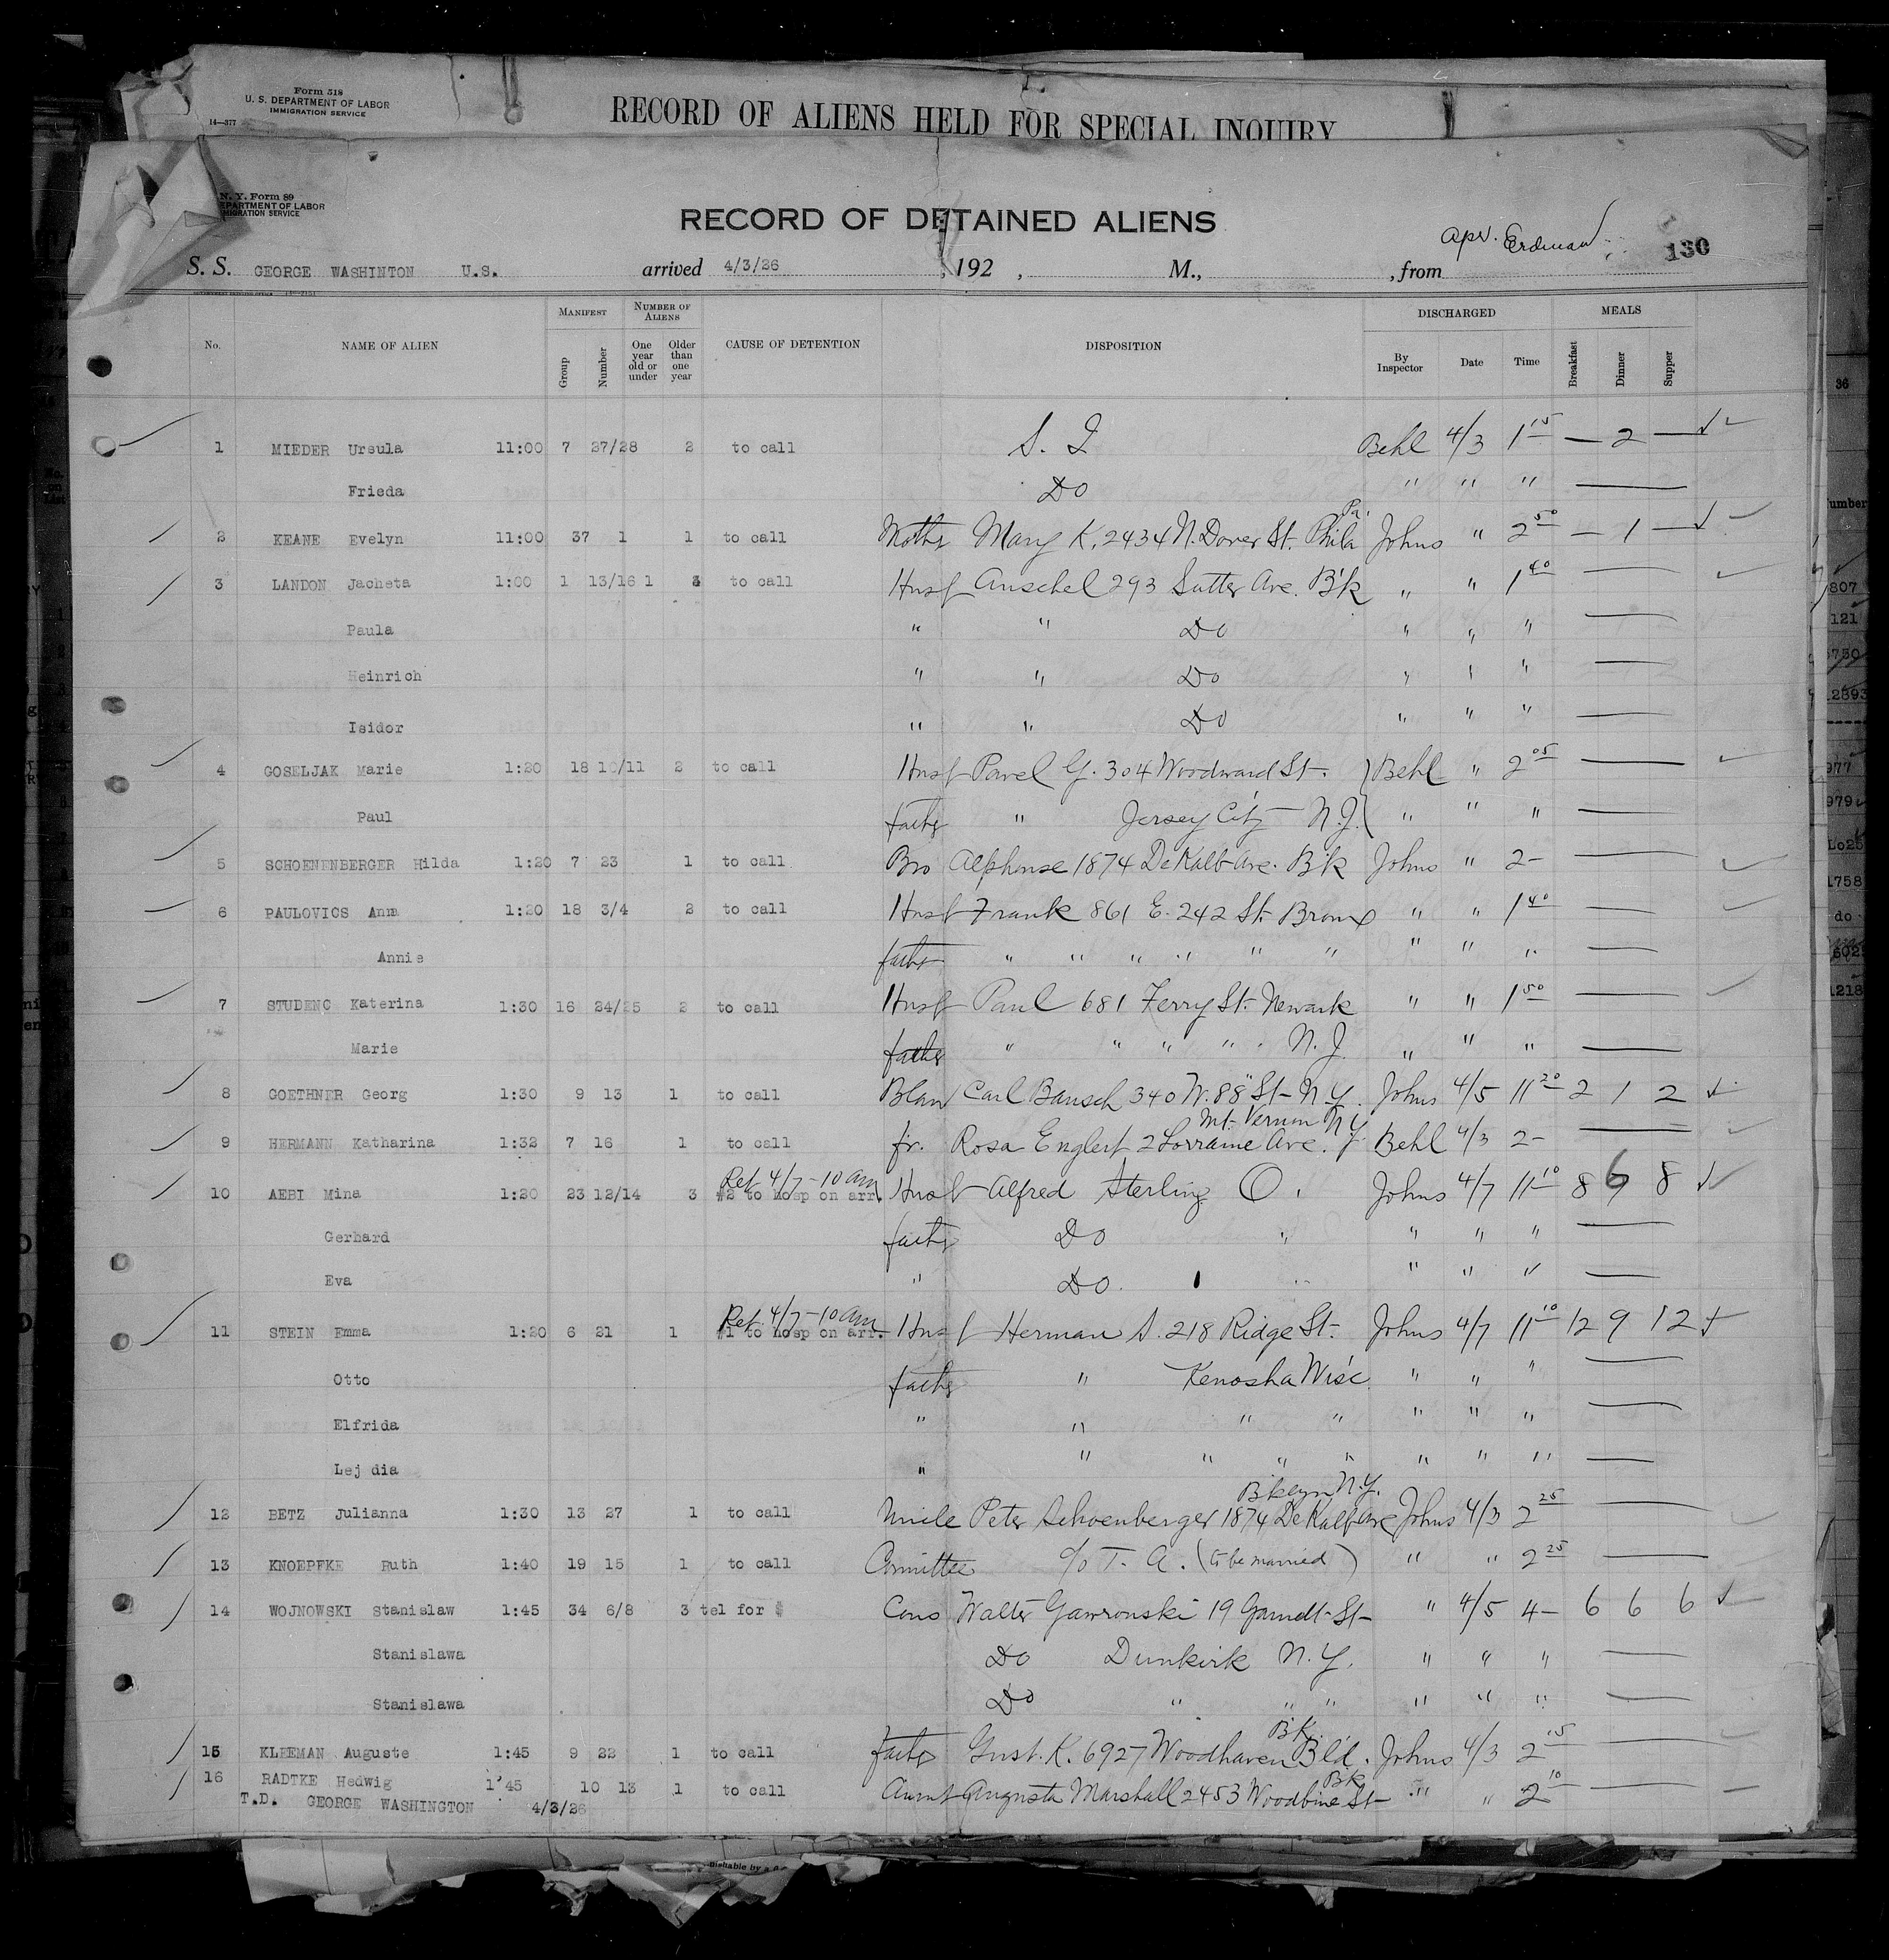 Form 518
U. S. DEPARTMENT OF LABOR
IMMIGRATION SERVICE
14—377
RECORD OF ALIENS HELD FOR SPECIAL INQUIRY
N. Y. Form 89
EPARTMENT OF LABOR
MIGRATION SERVICE
RECORD OF DETAINED ALIENS
Apr. Erdman 130
S. S. GEORGE WASHINTON U.S. arrived 4/3/26, 192 , M., , from
No. NAME OF ALIEN MANIFEST Group Number NUMBER OF ALIENS One year old or under Older than one year CAUSE OF DETENTION DISPOSITION DISCHARGED By Inspector Date Time MEALS Breakfast Dinner Supper
1 MIEDER Ursula 11:00 7 27/28 2 to call S. I Behl 4/3 1 15 — 2 —
Frieda Do " " " —
2 KEANE Evelyn 11:00 37 1 1 to call Mother Mary K. 2434 N. Dover St. Phila Pa. Johns " 2 50 — 1 —
3 LANDON Jacheta 1:00 1 13/16 1 3 to call Husb Anschel 293 Sutter Ave. B'k " " 1 40 —
Paula " " Do " " " —
Heinrich " " Do " " " —
Isidor " " Do " " " —
4 GOSELJAK Marie 1:20 18 10/11 2 to call Husb Pavel G. 304 Woodward St. Behl " 2 05 —
Paul father " Jersey City N.J. " " " —
5 SCHOENENBERGER Hilda 1:20 7 23 1 to call Bro Alphonse 1874 DeKalb Ave. B'k Johns " 2- —
6 PAULOVICS Anna 1:20 18 3/4 2 to call Husb Frank 861 E. 242 St. Bronx " " 1 40 —
Annie father " " " " " " " " " —
7 STUDENC Katerina 1:30 16 24/25 2 to call Husb Paul 681 Ferry St. Newark " " 1 50 —
Marie father " " " " N.J. " " " —
8 GOETHNER Georg 1:30 9 13 1 to call Carl Bausch 340 W. 88" St- N.Y. Johns 4/5 11 20 2 1 2
9 HERMANN Katharina 1:32 7 16 1 to call fr. Rosa Englert 2 Lorraine Ave. Mt. Vernon N.Y. Behl 4/3 2- —
10 AEBI Mina 1:20 23 12/14 3 Ret 4/7-10 am #2 to hosp on arr. Husb Alfred Sterling O. Johns 4/7 11 10 8 6 8
Gerhard father Do " " " " —
Eva " Do. " " " " —
11 STEIN Emma 1:20 6 21 1 Ret. 4/7-10 am #1 to hosp on arr. Husb Herman S. 218 Ridge St. Johns 4/7 11 10 12 9 12
Otto father " Kenosha Wisc. " " " —
Elfrida " " " " " " " —
Lejdia " " " " " " " " —
12 BETZ Julianna 1:30 13 27 1 to call Uncle Peter Schoenberger 1874 DeKalb Ave Bklyn N.Y. Johns 4/3 2 25 —
13 KNOEPFKE Ruth 1:40 19 15 1 to call Committee c/o T. A. (to be married) " " 2 25 —
14 WOJNOWSKI Stanislaw 1:45 34 6/8 3 tel for $ Cons Walter Gawronski 19 St- " 4/5 4- 6 6 6
Stanislawa Do Dunkirk N.Y. " " " —
Stanislawa Do " " " " " " —
15 KLEEMAN Auguste 1:45 9 22 1 to call father Gust. K. 6927 Woodhaven Bl'd. B'k. Johns 4/3 2 15 —
16 RADTKE Hedwig 1'45 10 13 1 to call Aunt Augusta Marshall 2453 Woodbine St- Bk " " 2 10 —
T.D. GEORGE WASHINGTON 4/3/26
36
umber
807
121
977
979
1758
do
602
1218